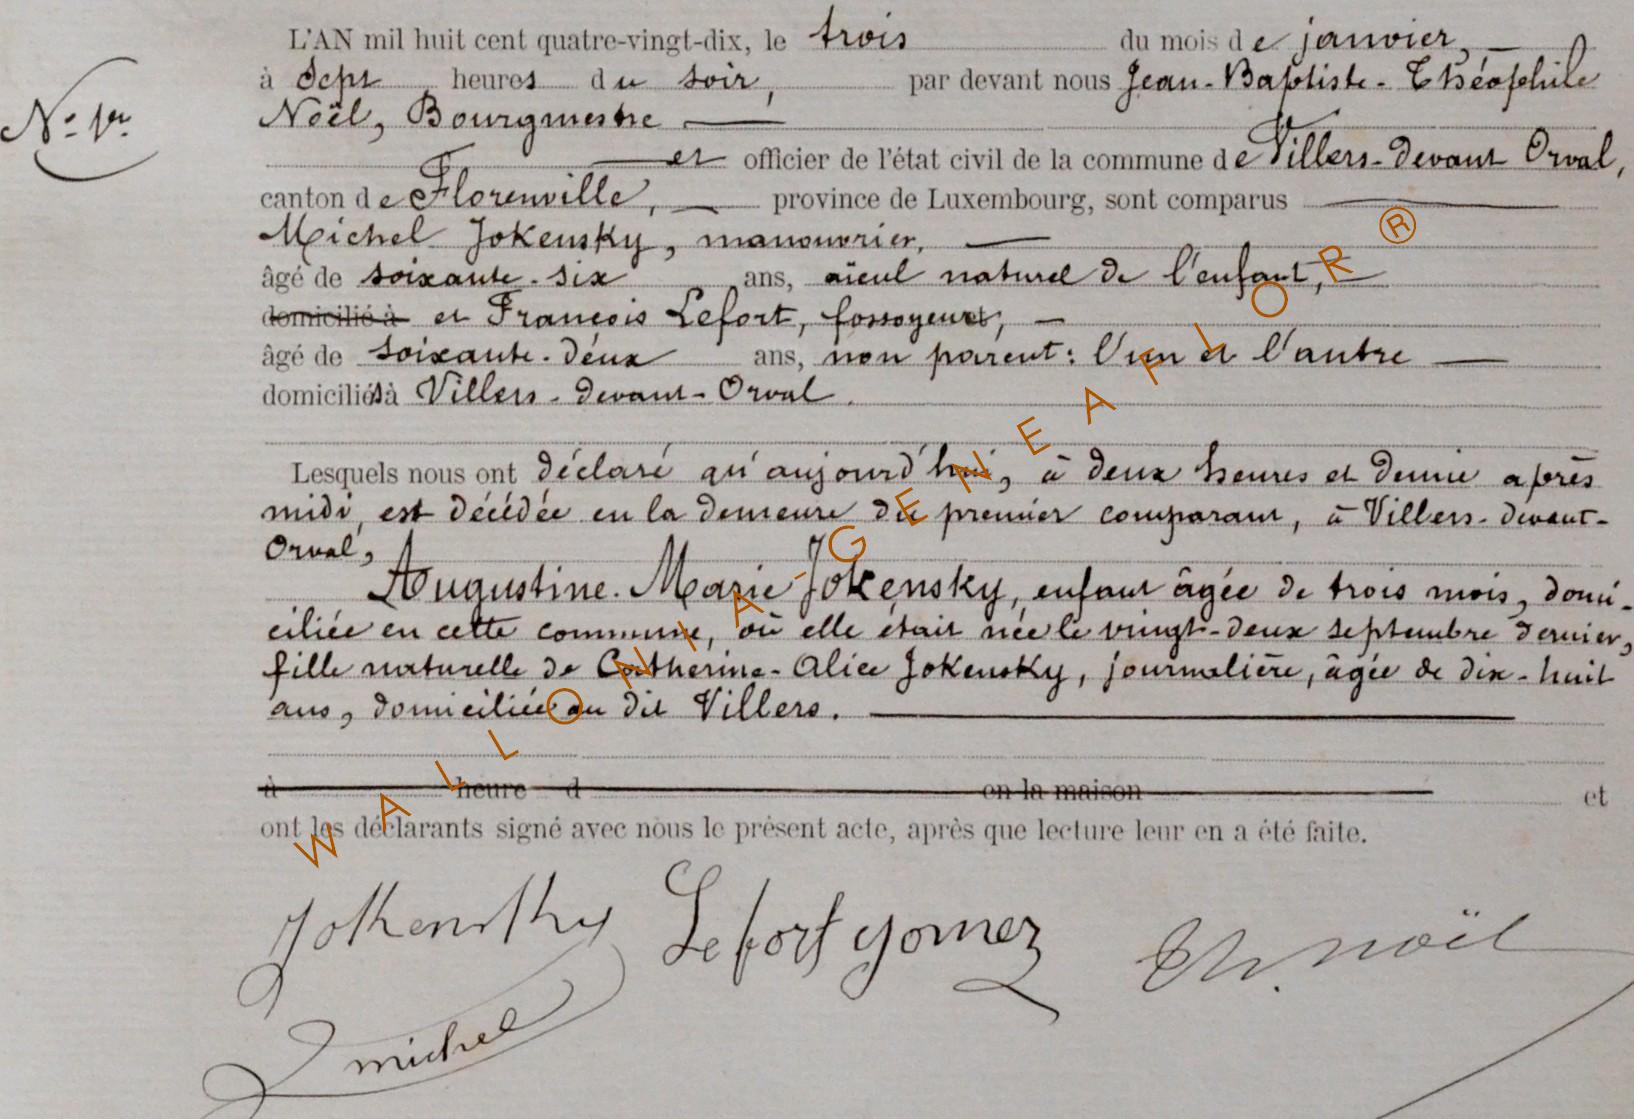 L'AN mil huit cent quatre-vingt-dix, le trois du mois de janvier,
à sept heures du soir, par devant nous Jean-Baptiste-Théophile
Nº 1er
Noël, Bourgmestre
et officier de l'état civil de la commune de Villers-devant Orval,
canton de Florenville, province de Luxembourg, sont comparus
Michel Jokensky, manouvrier,
âgé de soixante-six ans, aïeul naturel de l'enfant,
domicilié à et François Lefort, fossoyeur,
âgé de soixante-deux ans, non parent: l'un et l'autre
domiciliés à Villers-devant-Orval.
Lesquels nous ont déclaré qu'aujourd'hui, à deux heures et demie après
midi, est décédée en la demeure du premier comparant, à Villers-devant-
Orval,
Augustine-Marie Jokensky, enfant âgée de trois mois, domi-
ciliée en cette commune, où elle était née le vingt-deux septembre dernier,
fille naturelle de Catherine-Alice Jokensky, journalière, âgée de dix-huit
ans, domiciliée au dit Villers.
à heure d en la maison et
ont les déclarants signé avec nous le présent acte, après que lecture leur en a été faite.
Jokensky Lefort gomez Th. Noël
michel
WALLONIA-GENEAFLOR®